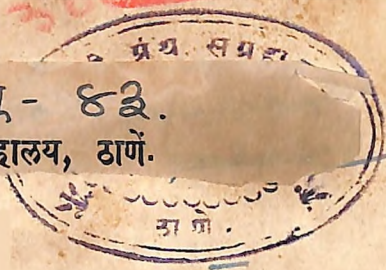 ग्रंथ संग्रहा
- ४३.
हालय, ठाणें.
ठाणे.